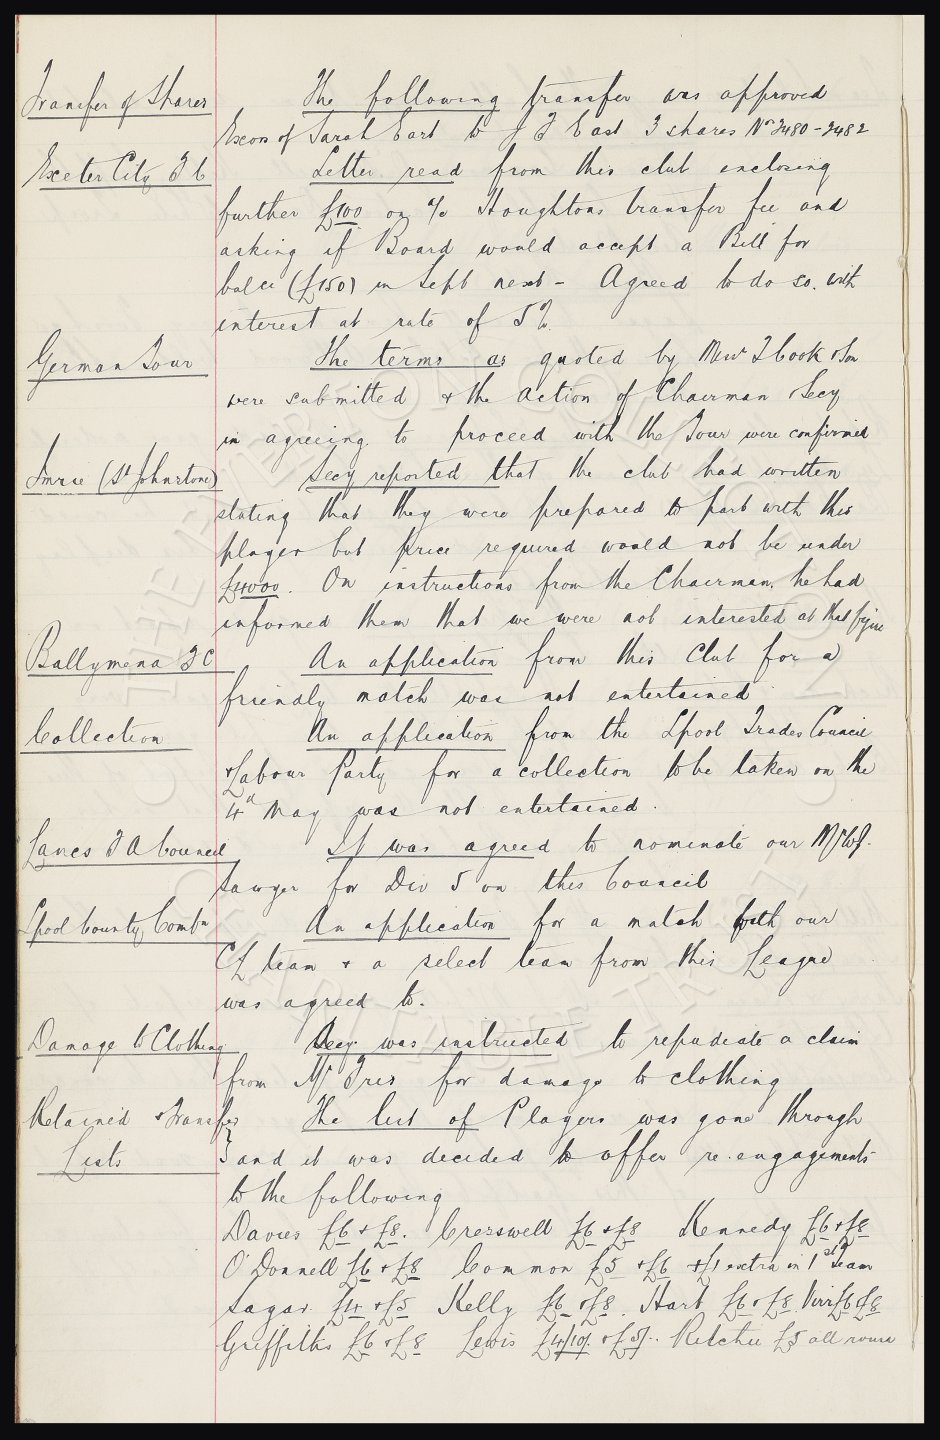 Transfer of Shares
The following transfer was approved
Excors of Sarah East to J F East 3 shares Nos 2480-2482
Exeter City F C
Letter read from this club enclosing
further £100 on a/c Houghtons transfer fee and
asking if Board would accept a Bill for
balce (£150) in Sept next - Agreed to do so. with
interest at rate of 5%.
German Tour
The terms as quoted by Messrs T Cook & Son
were submitted & the action of Chairman & Secy
in agreeing to proceed with the Tour were confirmed
Imrie (St Johnstone)
Secy reported that the club had written
stating that they were prepared to part with this
player but price required would not be under
£4000. On instructions from the Chairman, he had
informed them that we were not interested at that figure
Ballymena F C
An application from this Club for a
friendly match was not entertained
Collection
An application from the Lpool Trades Council
& Labour Party for a collection to be taken on the
4th May was not entertained.
Lancs F A Council
It was agreed to nominate our Mr W J.
Sawyer for Div 5 on this Council
Lpool County Combn
An application for a match with our
CL team & a select team from this League
was agreed to.
Damage to Clothing
Secy was instructed to repudiate a claim
from Mr for damage to clothing
Retained & Transfer
Lists
The list of Players was gone through
and it was decided to offer re-engagements
to the following
Davies £6 & £8. Cresswell £6 & £8 Kennedy £6 & £8
O'Donnell £6 & £8 Common £5 & £6 & £1 extra in 1st Team
Sagar £4 & £5 Kelly £6 & £8. Hart £6 & £8. Virr £6 & £8
Griffiths £6 & £8 Lewis £4/10/- & £5/-. Ritchie £5 all round